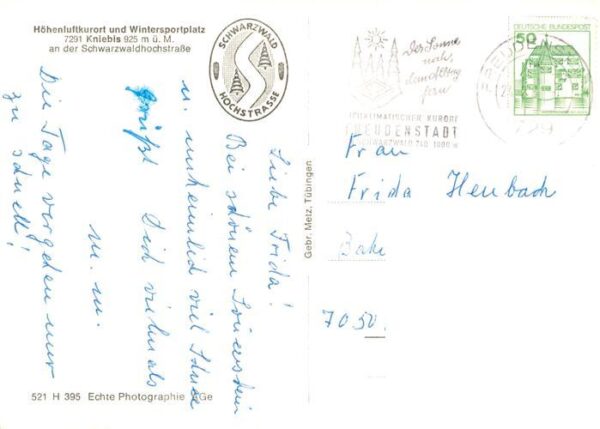 Höhenluftkurort und Wintersportplatz
7291 Kniebis 925 m ü. M.
an der Schwarzwaldhochstraße
SCHWARZWALD
HOCHSTRASSE
Liebe Frida!
Bei schönem Sonnenschein
u. unheimlich viel Schnee
grüßt Dich vielmals
M. M.
Die Tage vergehen nur
zu schnell!
521 H 395 Echte Photographie
Gebr. Metz, Tübingen
Der Sonne
nah,
dem Alltag
fern
HEILKLIMATISCHER KURORT
FREUDENSTADT
SCHWARZWALD 740-1000 m
FREUDENS
729
DEUTSCHE BUNDESPOST
50
Frau
Frida Heubach
7050